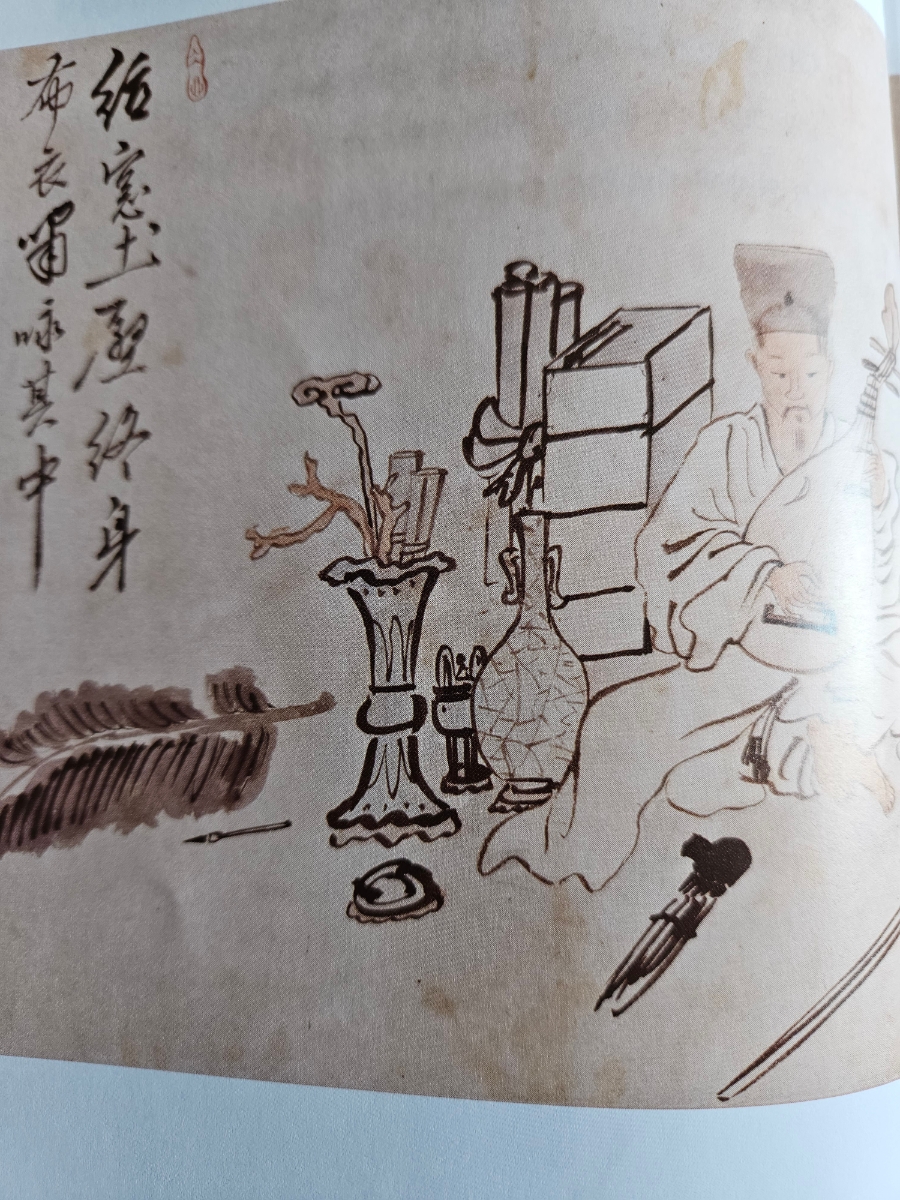 紙窓土壁終身
布衣嘯咏其中